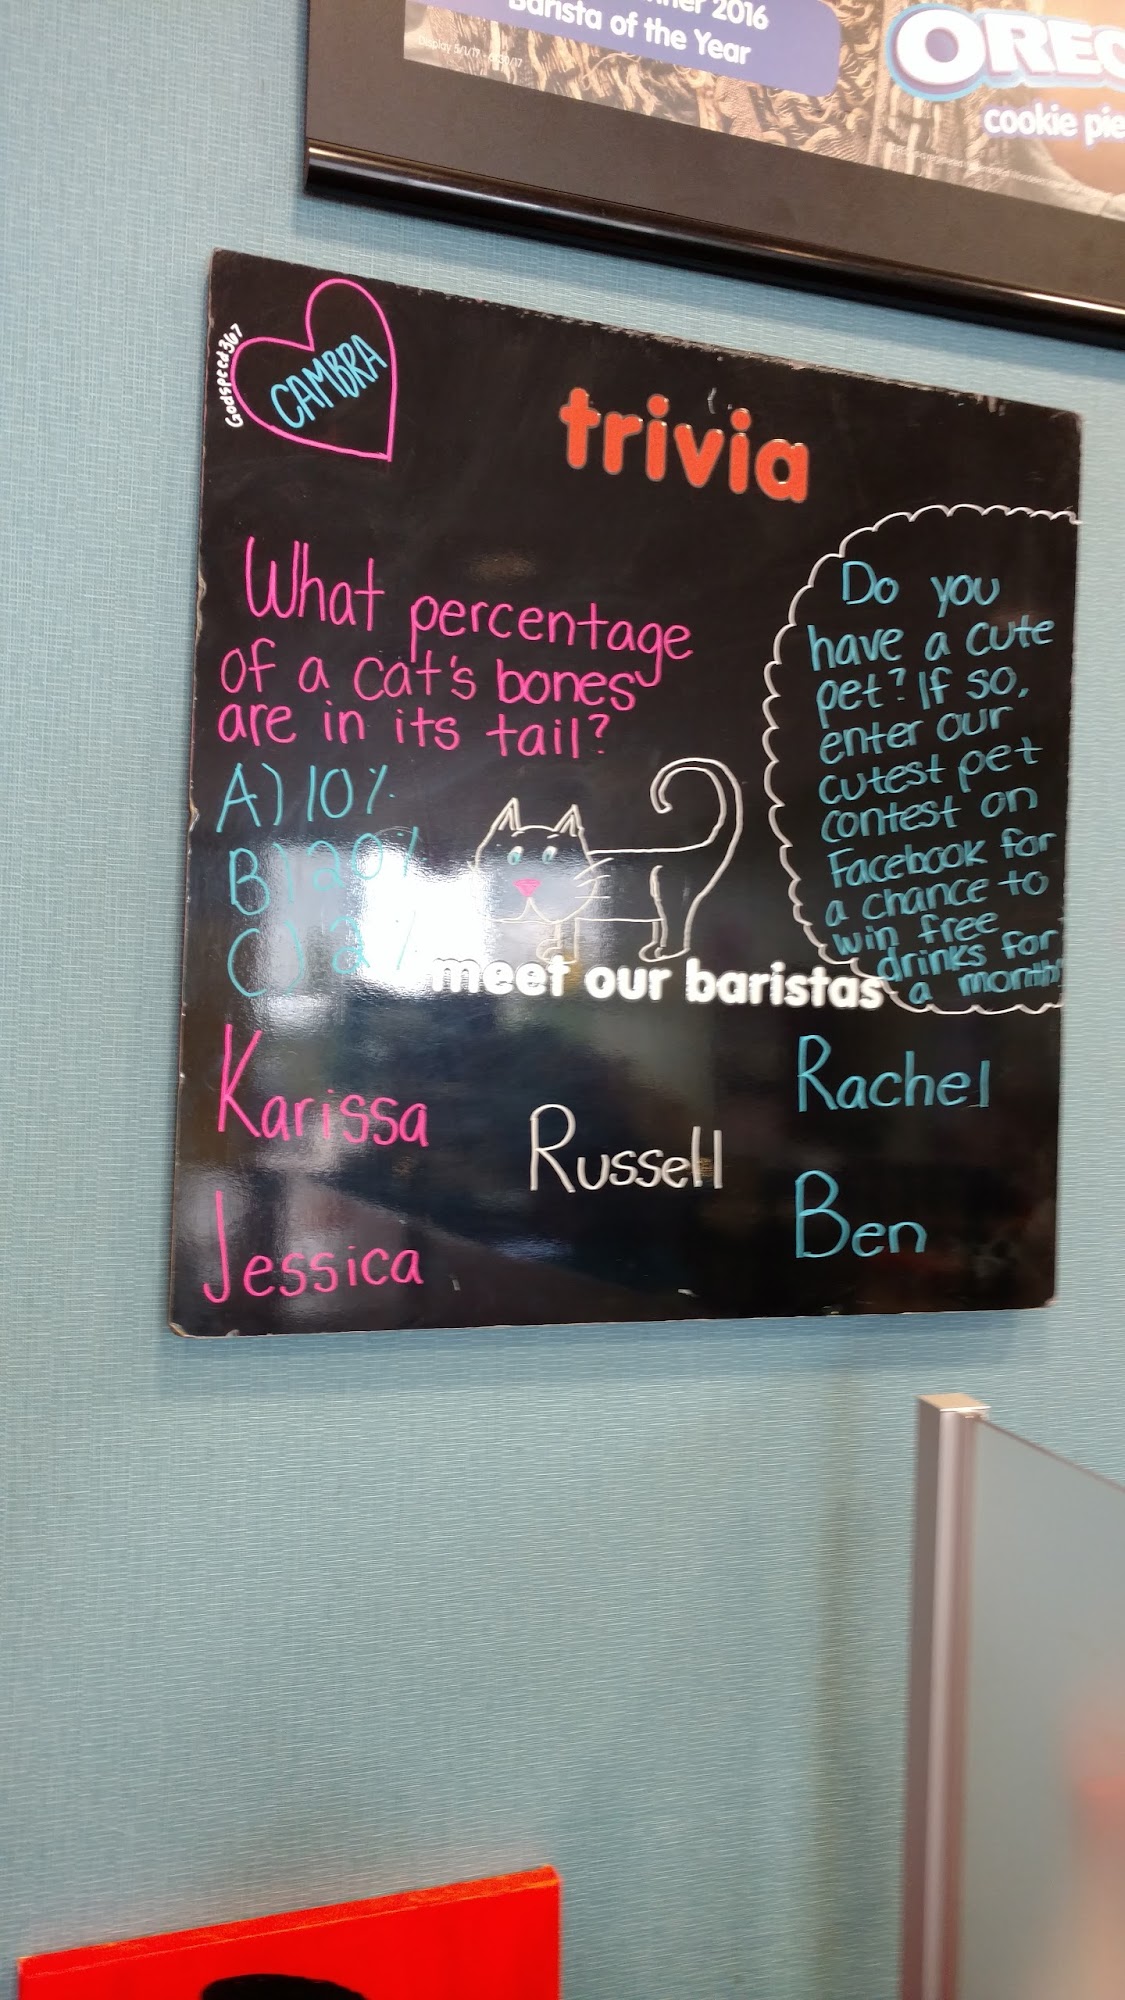 2016
Barista of the Year
Display 5/1/17
OREO
cookie
Godspeed367
CAMBRA
trivia
What percentage
of a cat's bones
are in its tail?
A) 10%
B) 20%
C) 2%
Do you
have a cute
pet? If so,
enter our
cutest pet
contest on
Facebook for
a chance to
win free
drinks for
a month!
meet our baristas
Karissa
Rachel
Russell
Jessica
Ben